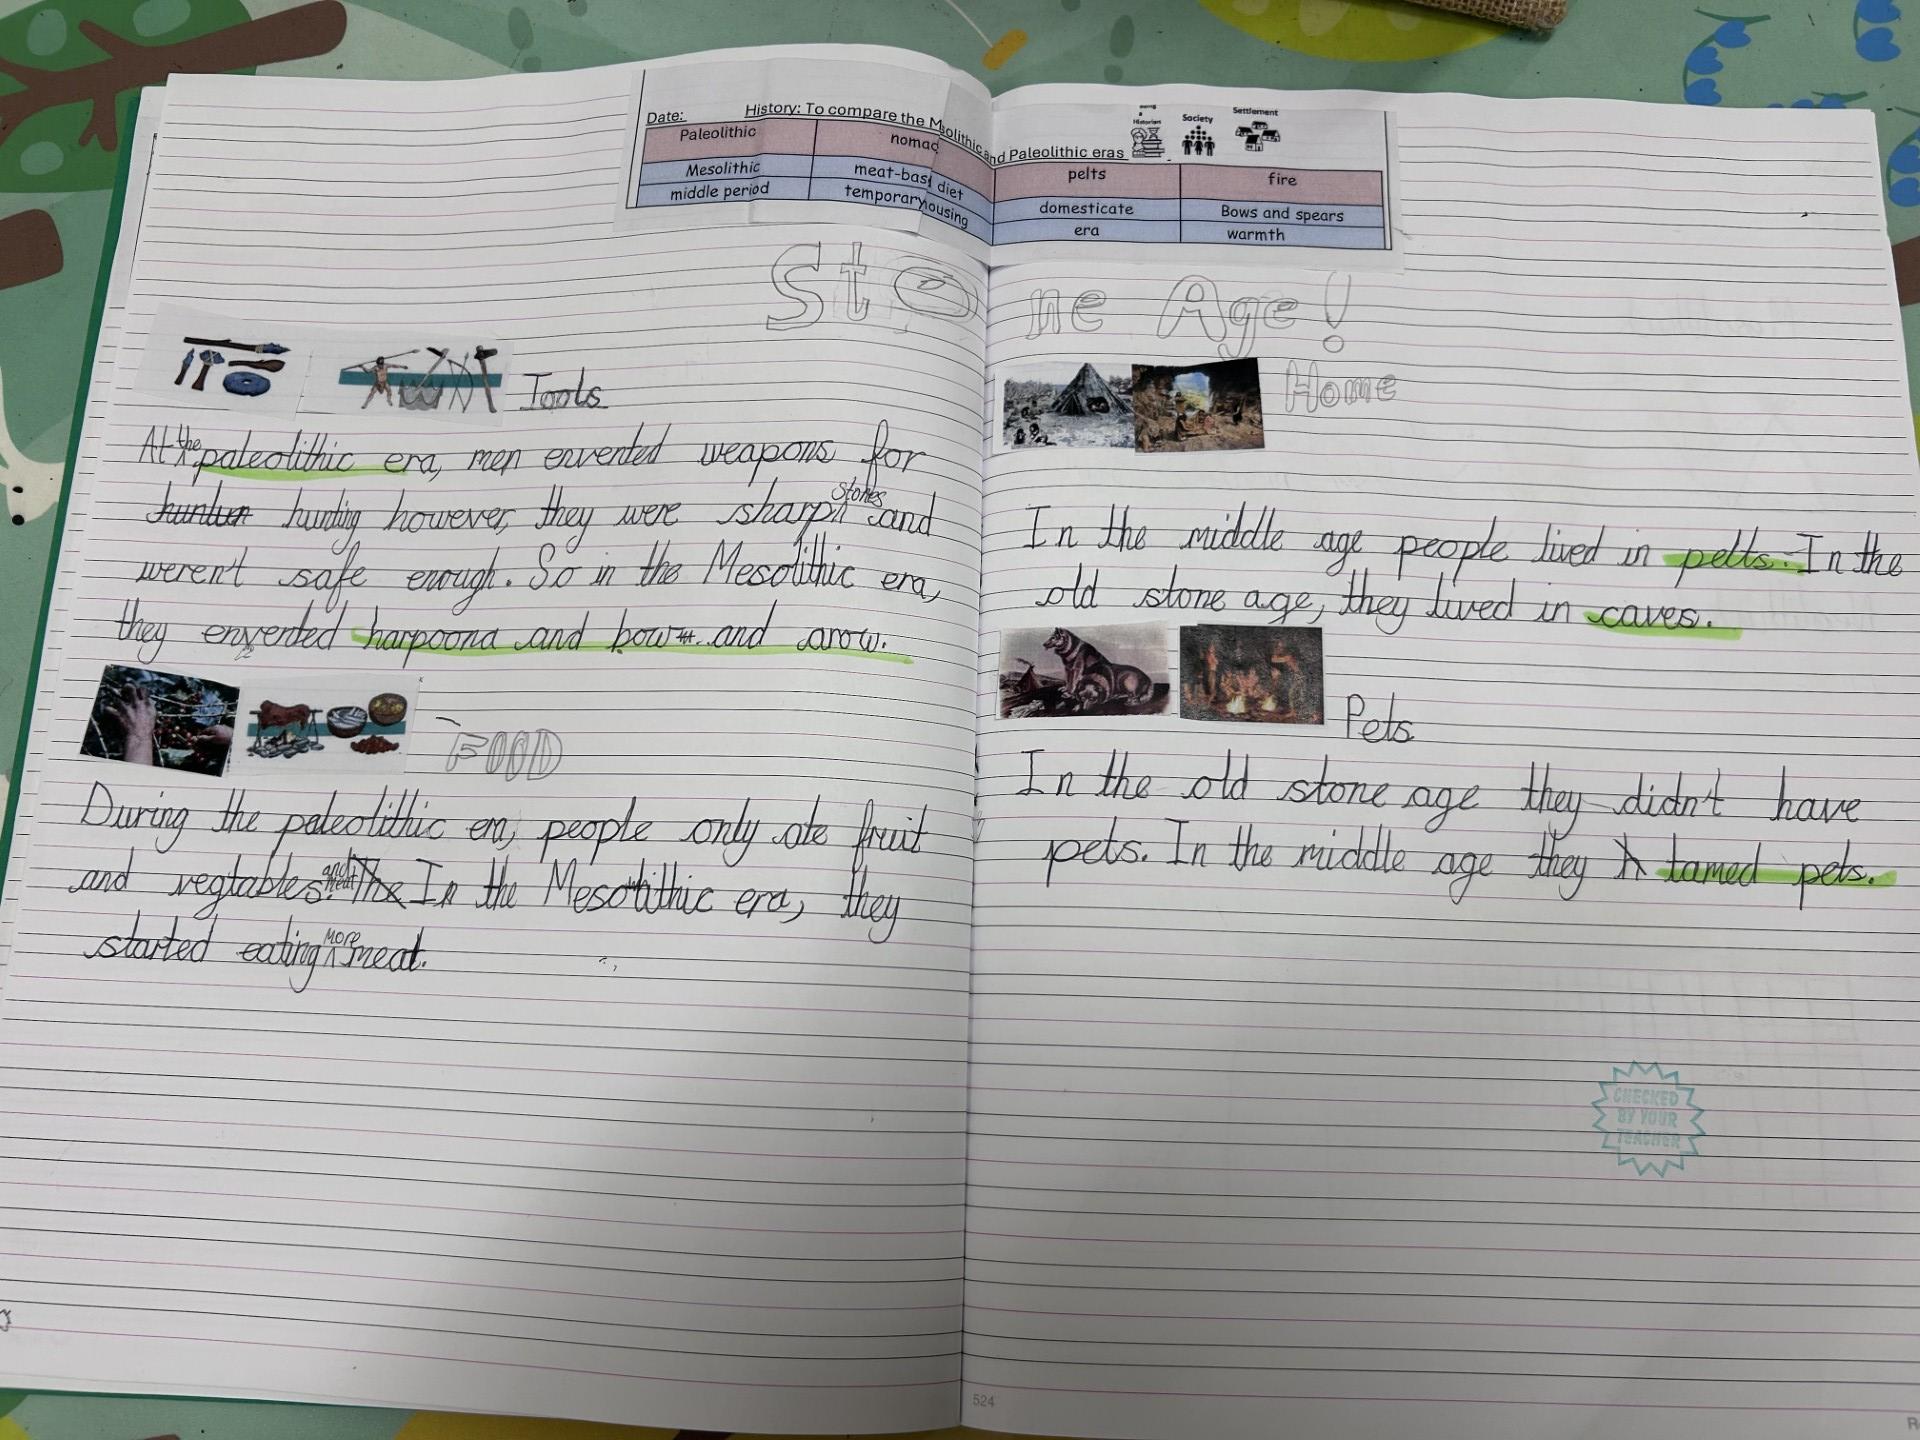 Date: History: To compare the Mesolithic and Paleolithic eras
Being a Historian
Society
Settlement
Paleolithic nomad pelts fire
Mesolithic meat-based diet domesticate Bows and spears
middle period temporary housing era warmth
Stone Age!
Tools
At the paleolithic era, men envented weapons for
huntun hunting however, they were sharp stones and
weren't safe enough. So in the Mesolithic era,
they envented harpoona and bow and arow.
FOOD
During the paleolithic era, people only ate fruit
and vegtables and meat. The In the Mesolithic era, they
started eating more meat.
Home
In the middle age people lived in pelts. In the
old stone age, they lived in caves.
Pets
In the old stone age they didn't have
pets. In the middle age they h tamed pets.
CHECKED
BY YOUR
TEACHER
524